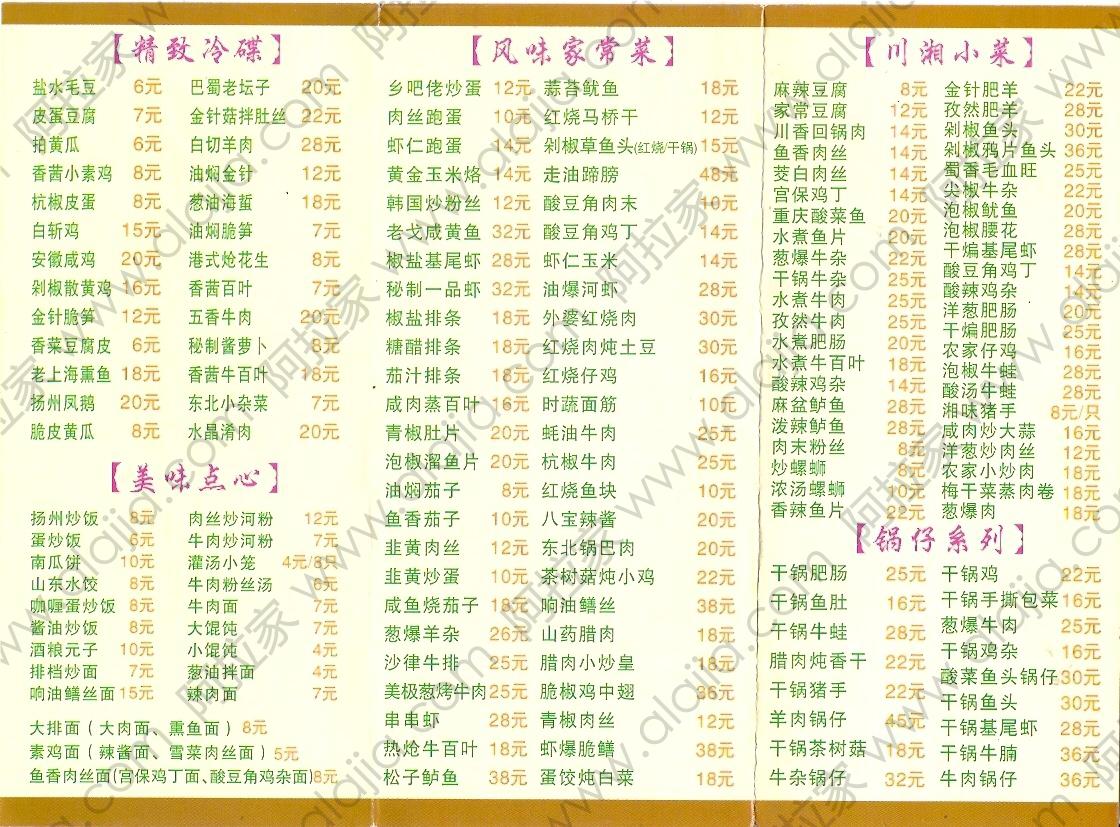 【精致冷碟】
盐水毛豆 6元 巴蜀老坛子 20元
皮蛋豆腐 7元 金针菇拌肚丝 22元
拍黄瓜 6元 白切羊肉 28元
香茜小素鸡 8元 油焖金针 12元
杭椒皮蛋 8元 葱油海蜇 18元
白斩鸡 15元 油焖脆笋 7元
安徽咸鸡 20元 港式炝花生 8元
剁椒散黄鸡 16元 香茜百叶 7元
金针脆笋 12元 五香牛肉 20元
香菜豆腐皮 6元 秘制酱萝卜 8元
老上海熏鱼 18元 香茜牛百叶 18元
扬州风鹅 20元 东北小杂菜 7元
脆皮黄瓜 8元 水晶淆肉 20元
【美味点心】
扬州炒饭 8元 肉丝炒河粉 12元
蛋炒饭 6元 牛肉炒河粉 7元
南瓜饼 10元 灌汤小笼 4元/8只
山东水饺 8元 牛肉粉丝汤 6元
咖喱蛋炒饭 8元 牛肉面 7元
酱油炒饭 8元 大馄饨 7元
酒粮元子 10元 小馄饨 4元
排档炒面 7元 葱油拌面 4元
响油鳝丝面 15元 辣肉面 7元
大排面（大肉面、熏鱼面）8元
素鸡面（辣酱面、雪菜肉丝面）5元
鱼香肉丝面(宫保鸡丁面、酸豆角鸡杂面)8元
【风味家常菜】
乡吧佬炒蛋 12元 蒜苔鱿鱼 18元
肉丝跑蛋 10元 红烧马桥干 12元
虾仁跑蛋 14元 剁椒草鱼头(红烧/干锅) 15元
黄金玉米烙 14元 走油蹄膀 48元
韩国炒粉丝 12元 酸豆角肉末 10元
老戈咸黄鱼 32元 酸豆角鸡丁 14元
椒盐基尾虾 28元 虾仁玉米 14元
秘制一品虾 32元 油爆河虾 28元
椒盐排条 18元 外婆红烧肉 30元
糖醋排条 18元 红烧肉炖土豆 30元
茄汁排条 18元 红烧仔鸡 16元
咸肉蒸百叶 16元 时蔬面筋 10元
青椒肚片 20元 蚝油牛肉 25元
泡椒溜鱼片 20元 杭椒牛肉 25元
油焖茄子 8元 红烧鱼块 10元
鱼香茄子 10元 八宝辣酱 20元
韭黄肉丝 12元 东北锅巴肉 20元
韭黄炒蛋 10元 茶树菇炖小鸡 22元
咸鱼烧茄子 18元 响油鳝丝 38元
葱爆羊杂 26元 山药腊肉 18元
沙律牛排 25元 腊肉小炒皇 18元
美极葱烤牛肉 25元 脆椒鸡中翅 36元
串串虾 28元 青椒肉丝 12元
热炝牛百叶 18元 虾爆脆鳝 38元
松子鲈鱼 38元 蛋饺炖白菜 18元
【川湘小菜】
麻辣豆腐 8元 金针肥羊 22元
家常豆腐 12元 孜然肥羊 28元
川香回锅肉 14元 剁椒鱼头 30元
鱼香肉丝 14元 剁椒鸦片鱼头 36元
茭白肉丝 14元 蜀香毛血旺 25元
宫保鸡丁 14元 尖椒牛杂 22元
重庆酸菜鱼 20元 泡椒鱿鱼 20元
水煮鱼片 20元 泡椒腰花 28元
葱爆牛杂 22元 干煸基尾虾 28元
干锅牛杂 25元 酸豆角鸡丁 14元
水煮牛肉 25元 酸辣鸡杂 14元
孜然牛肉 25元 洋葱肥肠 20元
水煮肥肠 20元 干煸肥肠 25元
水煮牛百叶 18元 农家仔鸡 16元
酸辣鸡杂 14元 泡椒牛蛙 28元
麻盆鲈鱼 28元 酸汤牛蛙 28元
泼辣鲈鱼 28元 湘味猪手 8元/只
肉末粉丝 8元 咸肉炒大蒜 16元
炒螺蛳 8元 洋葱炒肉丝 12元
浓汤螺蛳 10元 农家小炒肉 18元
香辣鱼片 22元 梅干菜蒸肉卷 18元
葱爆肉 18元
【锅仔系列】
干锅肥肠 25元 干锅鸡 22元
干锅鱼肚 16元 干锅手撕包菜 16元
干锅牛蛙 28元 葱爆牛肉 25元
腊肉炖香干 22元 干锅鸡杂 16元
干锅猪手 22元 酸菜鱼头锅仔 30元
羊肉锅仔 45元 干锅鱼头 30元
干锅茶树菇 18元 干锅基尾虾 28元
牛杂锅仔 32元 干锅牛腩 36元
牛肉锅仔 36元
阿拉家 www.alajia.com